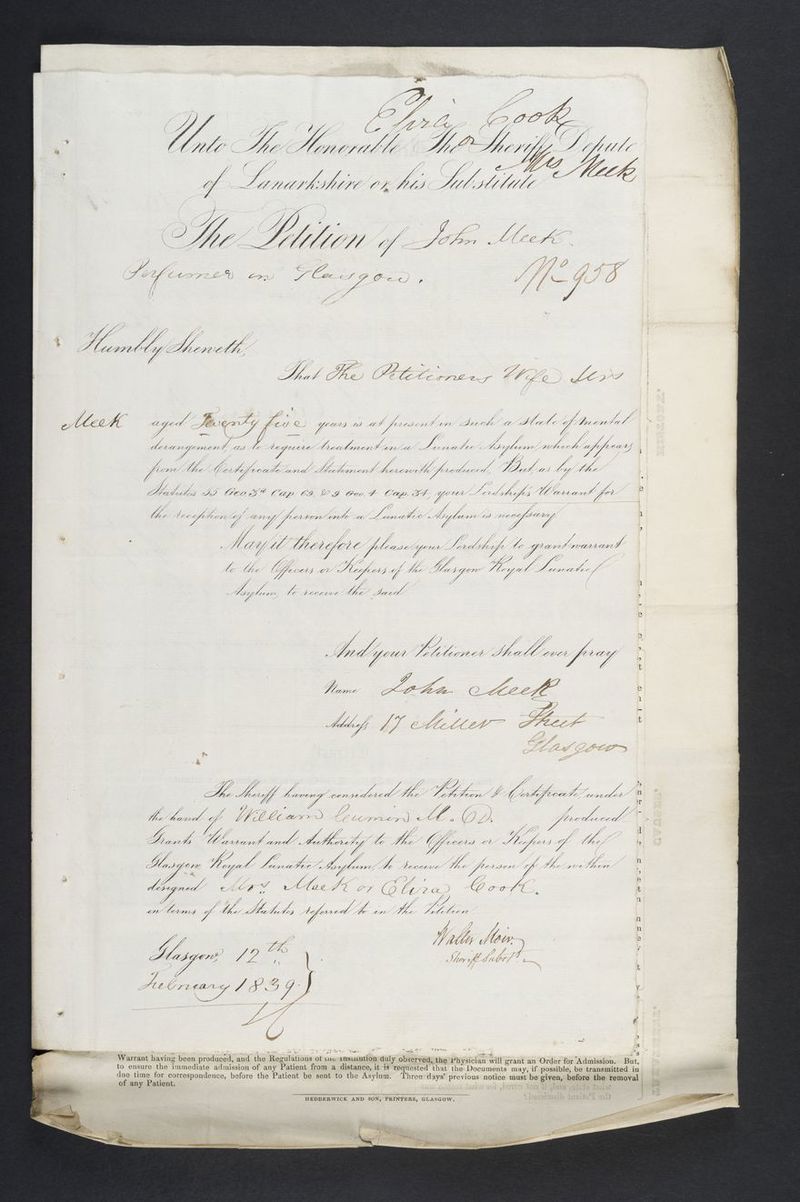 Elvia Cook
Unto The Honorable The Sheriff Depute
or
Mrs Meek
of Lanarkshire or his Substitute
The Petition of John Meek
Perfumer in Glasgow.
No 958
Humbly Sheweth,
That The Petitioners Wife Mrs
Meek aged Twenty five years is at present in such a state of mental
derangement, as to require treatment in a Lunatic Asylum, which appears
from the Certificate and Statement herewith produced. But, as by the
Statutes 55 Geo. 3d Cap. 69. & 9 Geo. 4 Cap. 34, your Lordship's Warrant for
the reception of any person into a Lunatic Asylum is necessary
May it therefore please your Lordship to grant warrant
to the Officers or Keepers of the Glasgow Royal Lunatic
Asylum, to receive the said
And your Petitioner shall ever pray
Name John Meek
Address 17 Miller Street
Glasgow
The Sheriff having considered the Petition & Certificate under
the hand of William Cumin M.D. produced
Grants Warrant and Authority to the Officers or Keepers of the
Glasgow Royal Lunatic Asylum, to receive the person of the within
designed Mrs Meek or Elvia Cook.
in terms of the Statutes referred to in the Petition
Walter Moir.
Sheriff Subst.
Glasgow, 12th
February 1839.
Warrant having been produced, and the Regulations of the Institution duly observed, the Physician will grant an Order for Admission. But,
to ensure the immediate admission of any Patient from a distance, it is requested that the Documents may, if possible, be transmitted in
due time for correspondence, before the Patient be sent to the Asylum. Three days' previous notice must be given, before the removal
of any Patient.
HEDDERWICK AND SON, PRINTERS, GLASGOW.